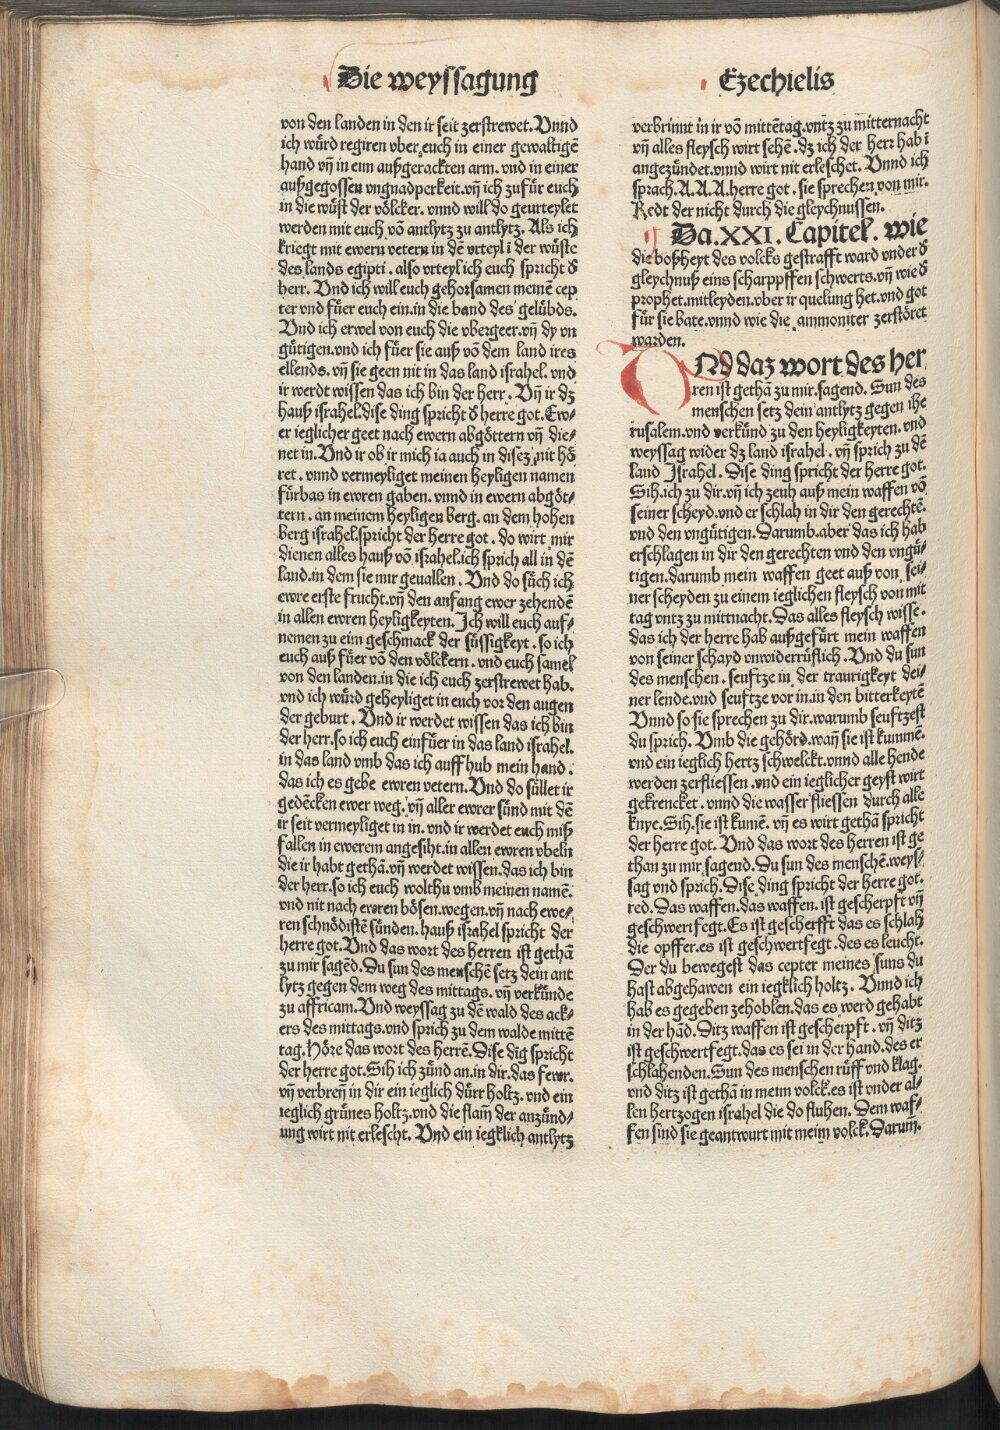 Die weyssagung
Ezechielis
von den landen in den ir seit zerstrewet. Vnnd
ich würd regiren vber euch in einer gewaltigẽ
hand vñ in eim außgerackten arm. vnd in einer
außgegossen vngnadperkeit. vñ ich zufür euch
in die wüst der völcker. vnnd will do geurteylet
werden mit euch võ antlytz zu antlytz. Als ich
kriegt mit ewern vetern in dẽ vrteyl ĩ der wüste
des lands egipti. also vrteyl ich euch spricht d̾
herr. Vnd ich will euch gehorsamen meinẽ cep
ter vnd füer euch ein. in die band des gelübds.
Vnd ich erwel von euch die vbergeer. vñ dy vn
gütigen. vnd ich füer sie auß võ dem land ires
ellends. vñ sie geen nit in das land israhel. vnd
ir werdt wissen das ich bin der herr. Vñ ir dz
hauß israhel. dise ding spricht d̾ herre got. Ew⸗
er ieglicher geet nach ewern abgöttern vñ die⸗
net in. Vnd ir ob ir mich ia auch in disez nit hö
ret. vnnd vermeyliget meinen heyligen namen
fürbas in ewren gaben. vnnd in ewern abgöt⸗
tern. an meinem heyligen berg. an dem hohen
berg israhel. spricht der herre got. do wirt mir
dienen alles hauß võ israhel. ich sprich all in dẽ
land. in dem sie mir geuallen. Vnd do süch ich
ewre erste frucht. vñ den anfang ewer zehendẽ
in allen ewren heyligkeyten. Ich will euch auf⸗
nemen zu eim geschmack der süssigkeyt. so ich
euch auß füer võ den völckern. vnd euch samel
von den landen. in die ich euch zerstrewet hab.
vnd ich würd geheyliget in euch vor den augen
der geburt. Vnd ir werdet wissen das ich bin
der herr. so ich euch einfüer in das land israhel.
in das land vmb das ich auff hub mein hand.
das ich es gebe ewren vetern. Vnd do süllet ir
gedẽcken ewer weg. vñ aller ewrer sünd mit dẽ
ir seit vermeyliget in in. vnd ir werdet euch miß
fallen in ewerem angesiht. in allen ewren vbeln
die ir habt gethã. vñ werdet wissen. das ich bin
der herr. so ich euch wolthu vmb meinen namẽ.
vnd nit nach ewren bösen. wegen. vñ nach ewe⸗
ren schnödistẽ sünden. hauß israhel spricht der
herre got. Vnd das wort des herren ist gethã
zu mir sagẽd. Du sun des menschẽ setz dein ant
lytz gegen dem weg des mittags. vñ verkünde
zu affricam. Vnd weyssag zu dẽ wald des ack⸗
ers des mittags. vnd sprich zu dem walde mittẽ
tag. Höre das wort des herrẽ. Dise dig spricht
der herre got. Sih ich zünd an. in dir. das fewr.
vñ verbreñ in dir ein ieglich dürr holtz. vnd ein
ieglich grünes holtz. vnd die flam̃ der anzünd⸗
ung wirt nit erlescht. Vnd ein iegklich antlytz
verbrinnt in ir võ mittẽtag. vntz zu mitternacht
vñ alles fleysch wirt sehẽ. dz ich der herr hab ĩ
angezündet. vnnd wirt nit erleschet. Vnnd ich
sprach. A. A. A. herre got. sie sprechen von mir.
Redt der nicht durch die gleychnussen.
Da. XXI. Capitel. wie
die boßheyt des volcks gestrafft ward vnder d̾
gleychnuß eins scharppffen schwerts. vñ wie d̾
prophet. mitleyden. vber ir quelung het. vnd got
für sie bate. vnnd wie die ammoniter zerstöret
warden.
VNd daz wort des her
ren ist gethã zu mir. sagend. Sun des
menschen setz dein antlytz gegen ihe
rusalem. vnd verkünd zu den heyligkeyten. vnd
weyssag wider dz land israhel. vñ sprich zu dẽ
land Israhel. Dise ding spricht der herre got.
Sih. ich zu dir. vñ ich zeuh auß mein waffen võ
seiner scheyd. vnd er schlah in dir den gerechtẽ.
vnd den vngütigen. Darumb. aber das ich hab
erschlagen in dir den gerechten vnd den vngü⸗
tigen. darumb mein waffen geet auß von sei⸗
ner scheyden zu einem ieglichen fleysch von mit
tag vntz zu mittnacht. Das alles fleysch wisse.
das ich der herre hab außgefürt mein waffen
von seiner schayd vnwiderrüflich. Vnd du sun
des menschen. seuftze in der traurigkeyt dei⸗
ner lende. vnd seuftze vor in. in den bitterkeytẽ
Vnnd so sie sprechen zu dir. warumb seuftzest
du sprich. Vmb die gehörd. wañ sie ist kummẽ.
vnd ein ieglich hertz schwelckt. vnnd alle hende
werden zerfliessen. vnd ein ieglicher geyst wirt
gekrencket. vnnd die wasser fliessen durch alle
knye. Sih. sie ist kumẽ. vñ es wirt gethã spricht
der herre got. Vnd das wort des herren ist ge
than zu mir sagend. Du sun des menschẽ. weys⸗
sag vnd sprich. Dise ding spricht der herre got.
red. Das waffen. das waffen. ist gescherpft vñ
geschwertfegt. Es ist gescherfft das es schlah
die opffer. es ist geschwertfegt. des es leucht.
Der du bewegest das cepter meines suns du
hast abgehawen ein iegklich holtz. Vnnd ich
hab es gegeben zehoblen. das es werd gehabt
in der hãd. Ditz waffen ist gescherpft. vñ ditz
ist geschwertfegt. das es sei in der hand. des er
schlahenden. Sun des menschen rüff vnd klag.
vnd ditz ist gethã in meim volck. es ist vnder al⸗
len hertzogen israhel die do fluhen. Dem waf⸗
fen sind sie geantwurt mit meim volck. Darum̃.